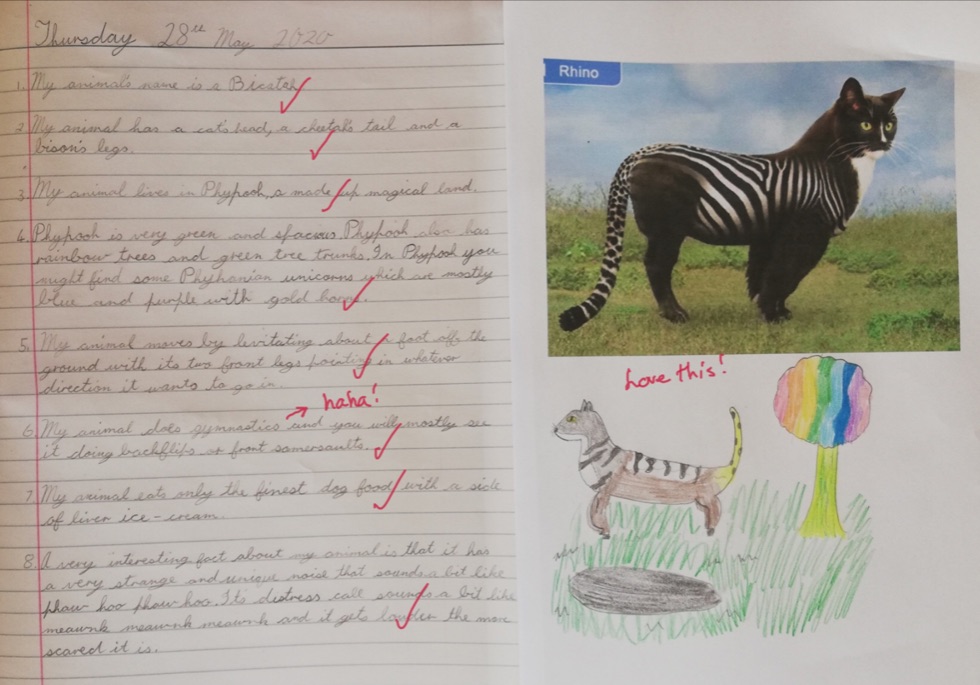 Thursday 28th May 2020
1. My animal's name is a Bicatah
2. My animal has a cat's head, a cheetah's tail and a
bison's legs.
3. My animal lives in Phypooh, a made up magical land.
4. Phypooh is very green and spacious. Phypooh also has
rainbow trees and green tree trunks. In Phypooh you
might find some Phyhanian unicorns which are mostly
blue and purple with gold horns.
5. My animal moves by levitating about a foot off the
ground with its two front legs pointing in whatever
direction it wants to go in.
haha!
6. My animal does gymnastics and you will mostly see
it doing backflips or front somersaults.
7. My animal eats only the finest dog food with a side
of liver ice-cream.
8. A very interesting fact about my animal is that it has
a very strange and unique noise that sounds a bit like
phaw hoo phaw hoo. It's distress call sounds a bit like
meawnk meawnk meawnk and it gets louder the more
scared it is.
Rhino
Love this!